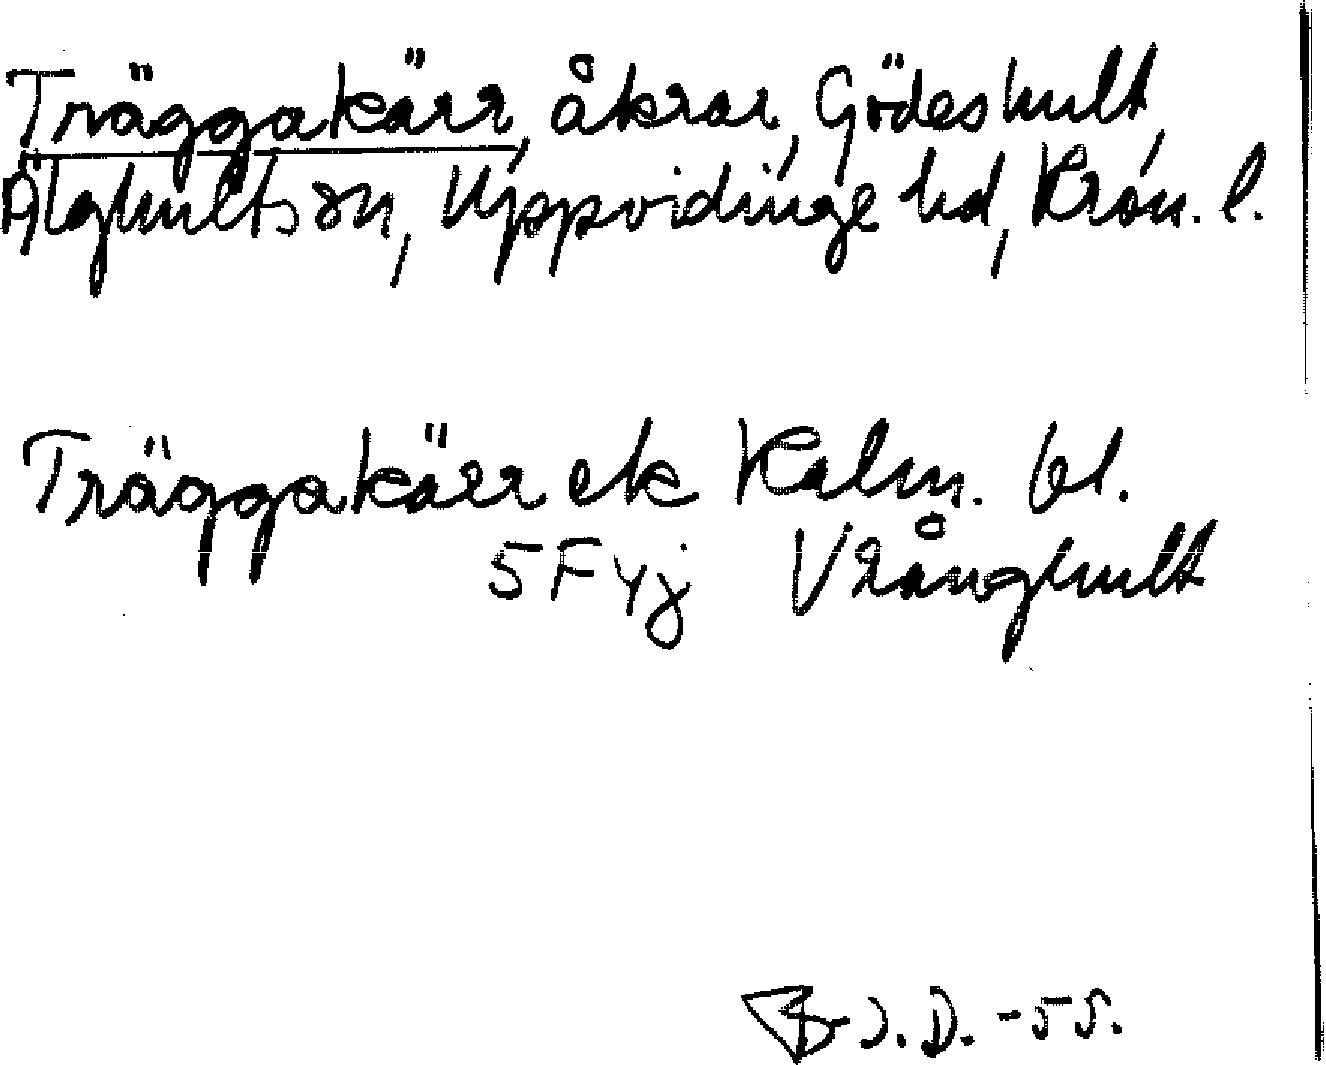 Träggakärr, åkrar, Gödeshult,
Älghults sn, Uppvidinge hd, Kron. l.
Träggakärr ek Kalm. bl.
5F4j Vrånghult
B. J. D. -55.